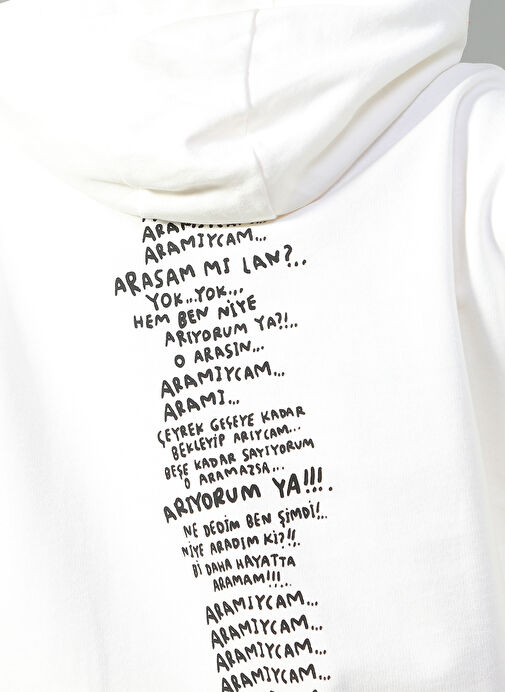 ARAMIYCAM...
ARAMIYCAM...
ARASAM MI LAN?..
YOK...YOK...
HEM BEN NİYE
ARIYORUM YA?!..
O ARASIN...
ARAMIYCAM...
ARAMI...
ÇEYREK GEÇEYE KADAR
BEKLEYİP ARIYCAM...
BEŞE KADAR SAYIYORUM
O ARAMAZSA...
ARIYORUM YA!!!.
NE DEDİM BEN ŞİMDİ!..
NİYE ARADIM Kİ?!!.
Bİ DAHA HAYATTA
ARAMAM!!!..
ARAMIYCAM...
ARAMIYCAM...
ARAMIYCAM...
ARAMIYCAM...